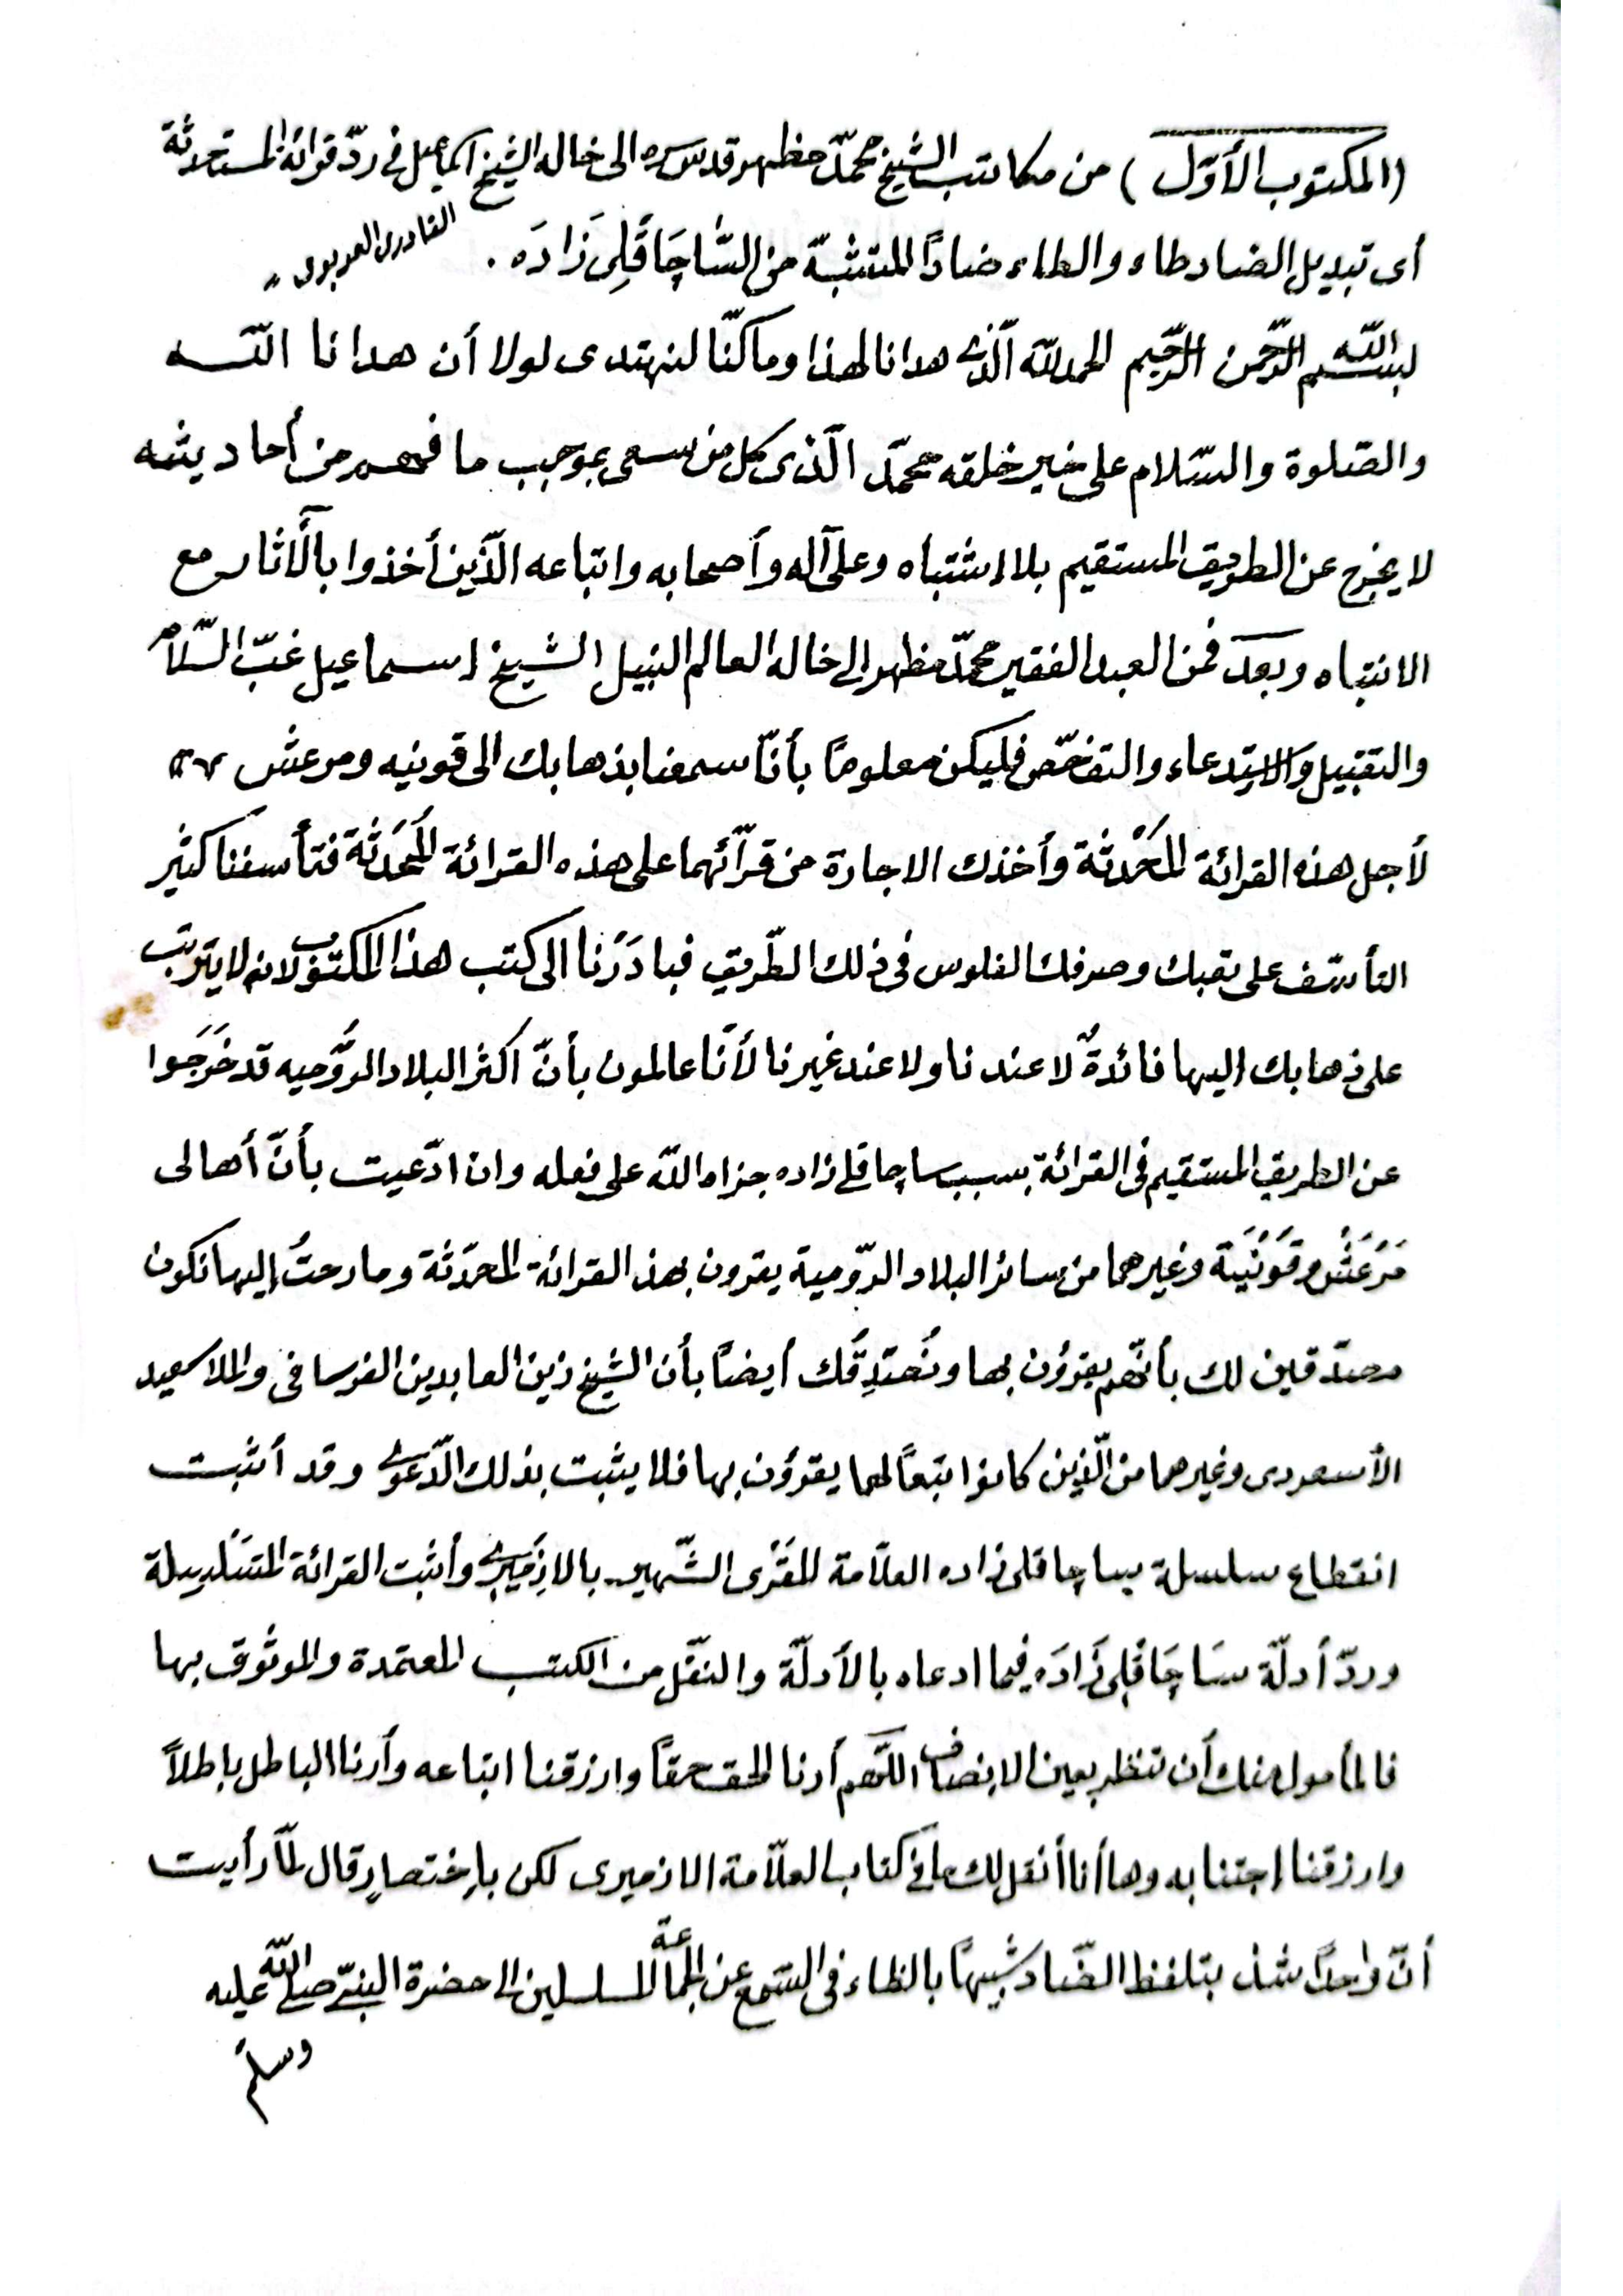 (المكتوب الأوّل) من مكاتب الشيخ محمّد مظهر قدس سره الى خاله الشيخ اسماعيل فى ردّ قرائة المستحدثة
أى تبديل الضاد طاء والطاء ضادًا المتشبّة من السّاچَاقْلِى زَادَه .
القادرى
بسم اللّه الرّحمن الرّحيم الحمد للّه الّذى هدانا لهذا وما كنّا لنهتدى لولا أن هدانا اللّه
والصّلوة والسّلام على خير خلقه محمّد الّذى كل من سعى بموجب ما فهم من أحاديثه
لا يخرج عن الطريق المستقيم بلا اشتباه وعلى آله وأصحابه واتباعه الّذين أخذوا بالأثار مع
الانتباه وبعد فمن العبد الفقير محمّد مظهر الى خاله العالم النبيل الشيخ اسماعيل غبّ السّلام
والتقبيل والاستدعاء والتفحّص فليكن معلومًا بأنّا سمعنا بذهابك الى قونيه ومرعش
لأجل هذه القرائة المُحْدَثة وأخذك الاجازة من قرّائهما على هذه القرائة المُحْدَثَة فتأسفنا كثير
التأسّف على تعبك وصرفك الفلوس فى ذلك الطّريق فبادَرْنا الى كتب هذا المكتوب لانه لا يترتب
على ذهابك اليها فائدةٌ لا عندنا ولا عند غيرنا لأنّا عالمون بأنّ اكثر البلاد الرّوميه قد خَرَجوا
عن الطريق المستقيم فى القرائة بسبب ساچاقلى زاده جزاه اللّه على فعله وان ادّعيت بأنّ أهالى
مَرْعَشْ وقَوْنْيَة وغيرهما من سائر البلاد الرّومية يقرون بهذ القرائة المحدَثة وما رحتُ اليها نكون
مصدّقين لك بأنّهم يقرؤن بها ونُصَدِّقُك أيضًا بأن الشيخ زين العابدين الفرسافى والملا سعيد
الأسعردى وغيرهما من الّذين كانوا تبعًا لهما يقرؤن بها فلا يثبت بذلك الدّعوى وقد أثبت
انقطاع سلسلة ساچاقلى زاده العلاّمة المقْرى الشّهير بالازميرى وأثبت القرائة المتسَلْسِلة
وردّ أدلّة سَاچَاقْلِى زَادَه فيما ادعاه بالأدلّة والنقْل من الكتب المعتمدة والموثوق بها
فالمأمول منك أن تنظر بعين الانصاف اللّهم أرنا الحق حقًا وارزقنا اتباعه وأرنا الباطل باطلاً
وارزقنا اجتنابه وها أنا أنقل لك ما فى كتاب العلاّمة الازميرى لكن باختصارٍ قال لمّا رأيت
أنّ واحدًا شذ بتلفظ الضّاد شبيهًا بالظاء فى السّمع عن الجماعة المسلسلين الى حضرة النبىّ صلى اللّه عليه
وسلم